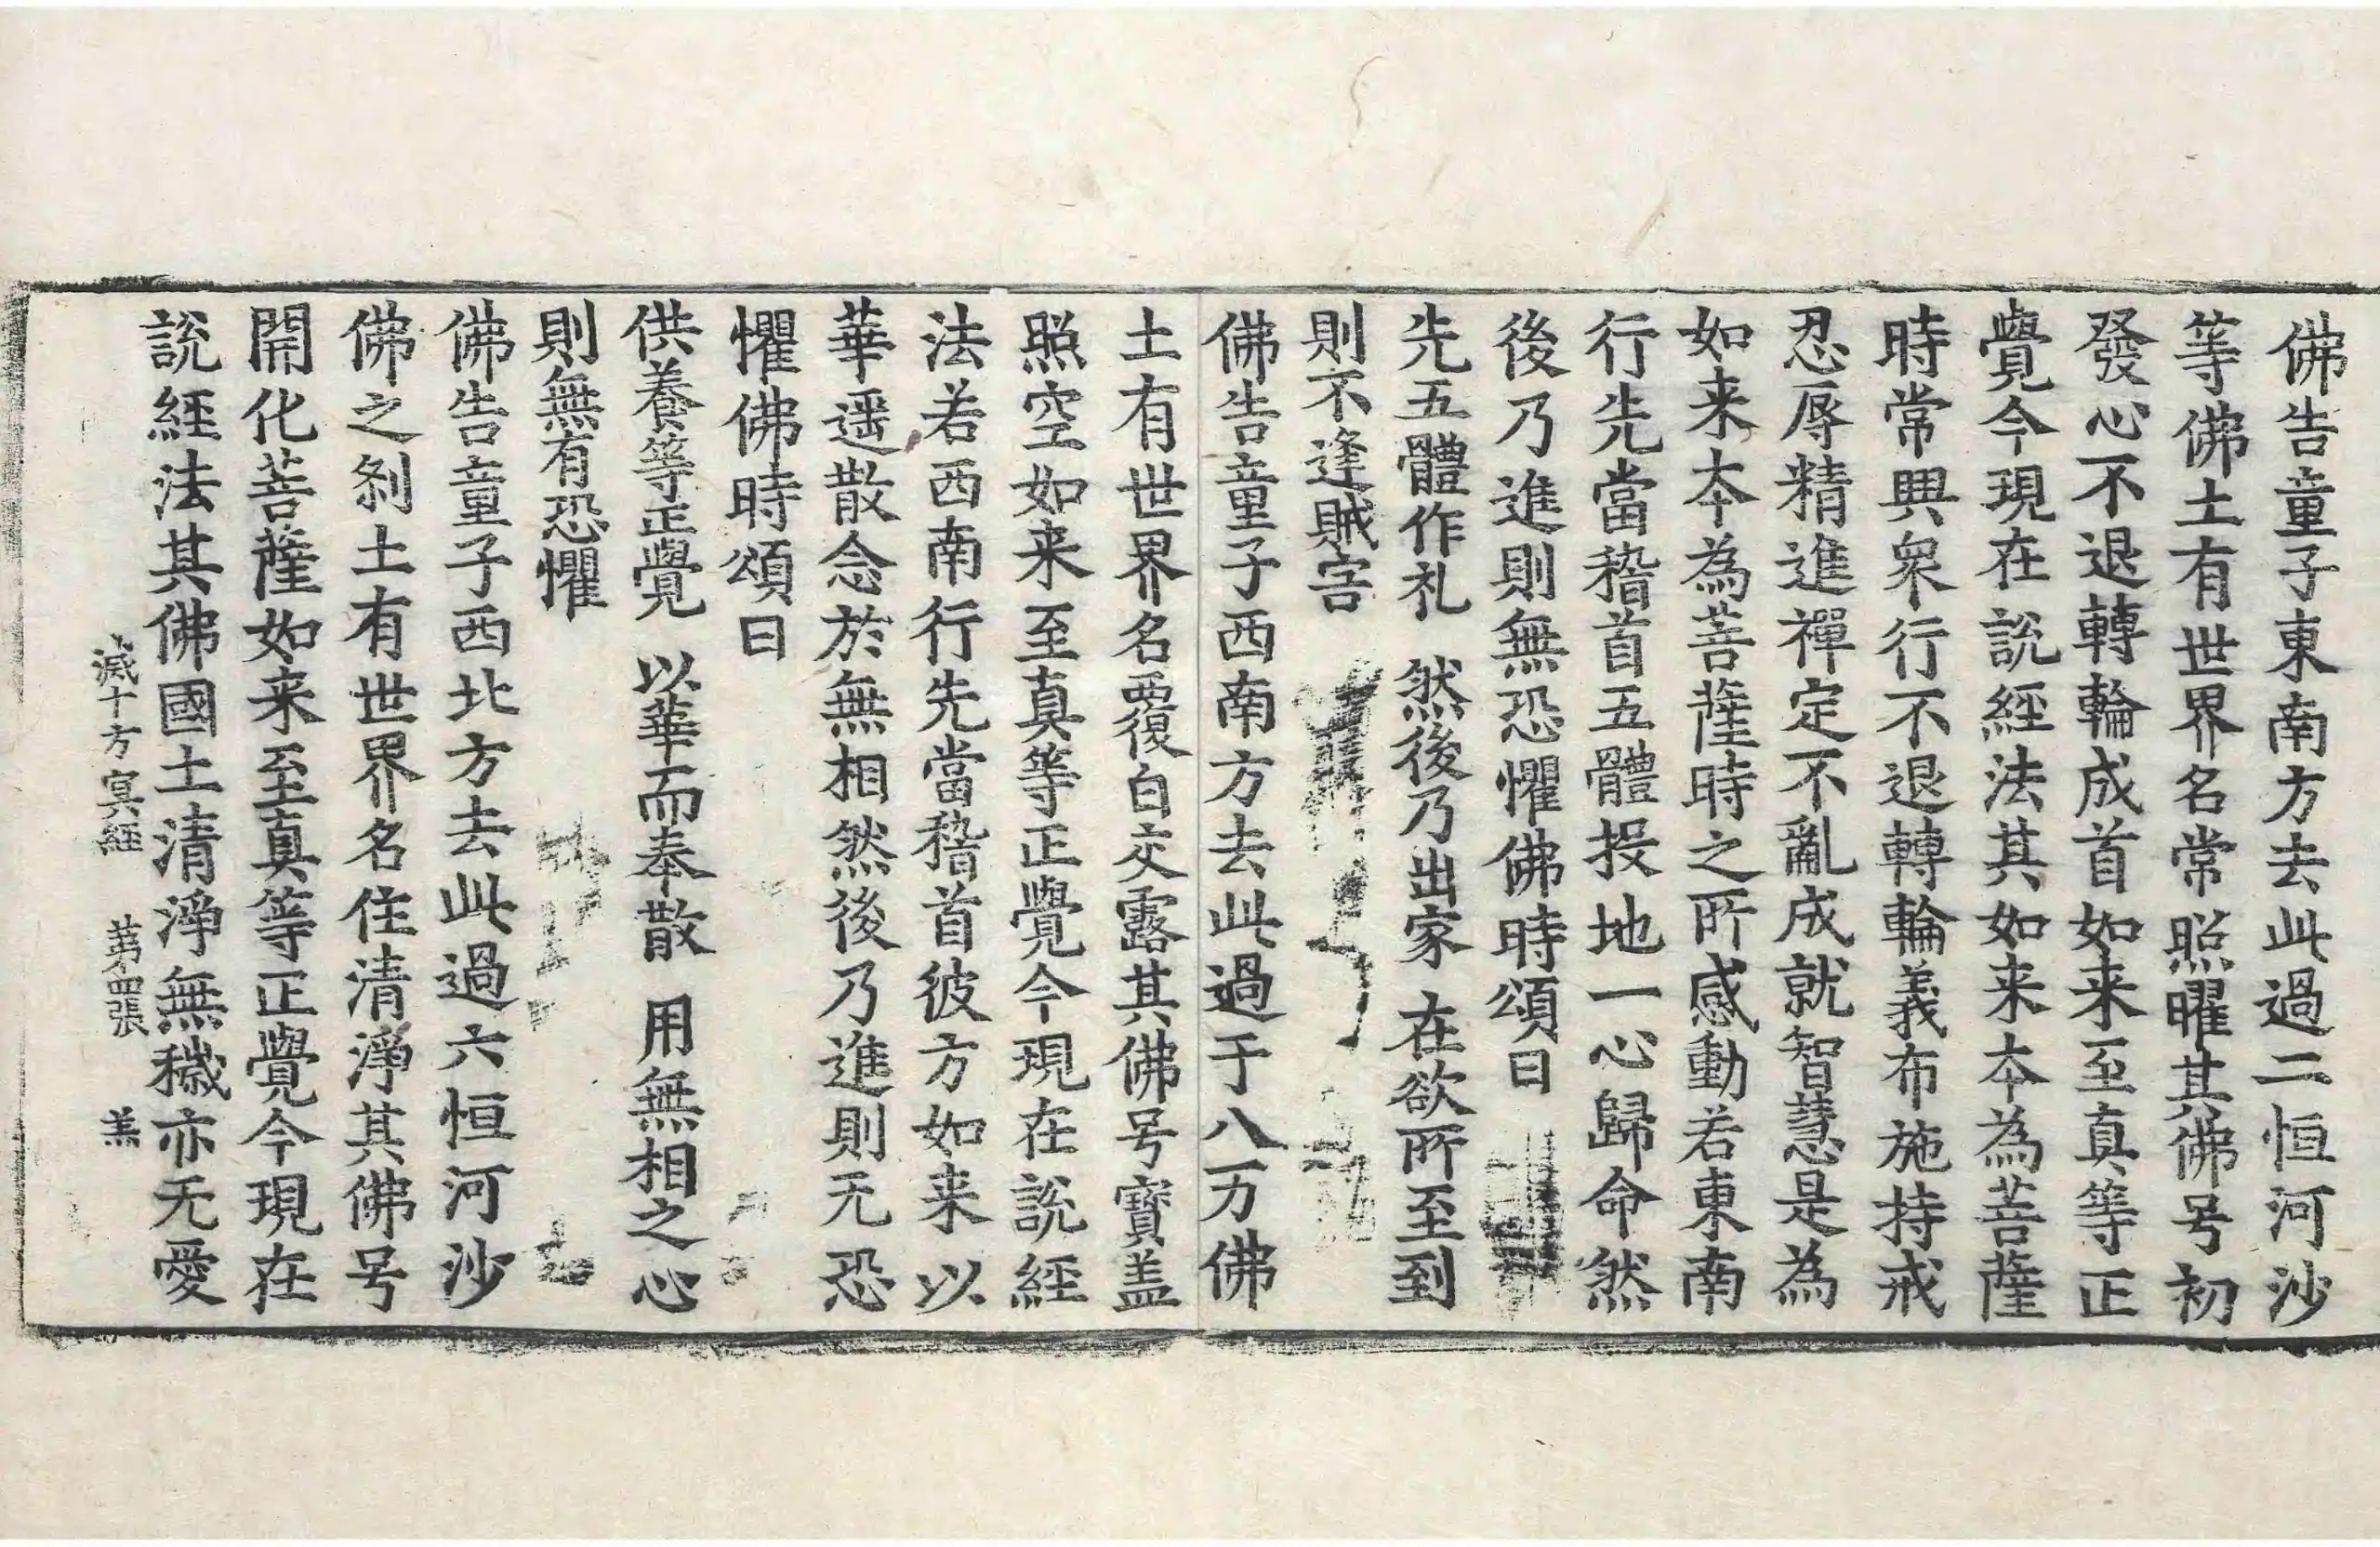 佛告童子東南方去此過二恒河沙
等佛土有世界名常照曜其佛号初
發心不退轉輪成首如来至真等正
覺今現在說經法其如来夲為菩薩
時常興衆行不退轉輪義布施持戒
忍辱精進禪定不亂成就智慧是為
如来夲為菩薩時之所感動若東南
行先當稽首五體投地一心歸命然
後乃進則無恐懼佛時頌曰
先五體作礼　然後乃出家　在欲所至到
則不逢賊害
佛告童子西南方去此過于八万佛
土有世界名覆白交露其佛号寶盖
照空如来至真等正覺今現在說經
法若西南行先當稽首彼方如来以
華遥散念於無相然後乃進則无恐
懼佛時頌曰
供養等正覺　以華而奉散　用無相之心
則無有恐懼
佛告童子西北方去此過六恒河沙
佛之刹土有世界名住清淨其佛号
開化菩薩如来至真等正覺今現在
說經法其佛國土清淨無穢亦无愛
滅十方㝠經　第四張　羔